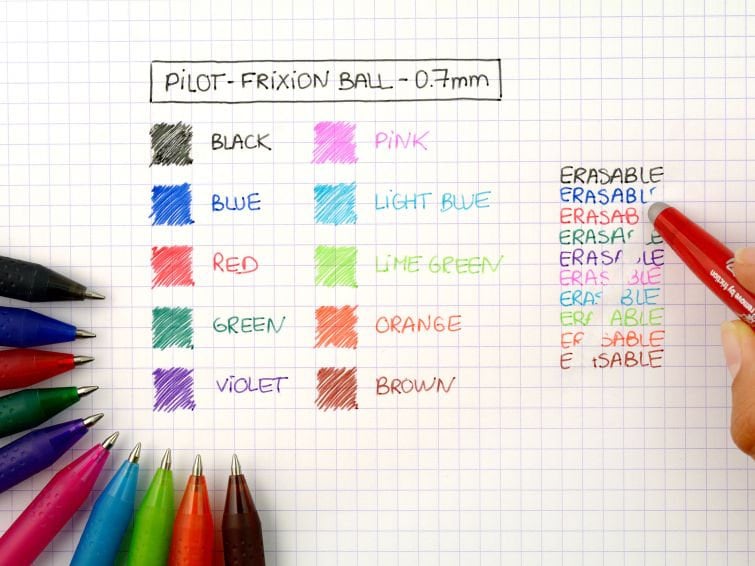 PiLOT-FRiXiON BALL-0.7mm
BLACK
BLUE
RED
GREEN
ViOLET
PiNK
LiGHT BLUE
LiME GREEN
ORANGE
BROWN
ERASABLE
ERASABL
ERASAB
ERASA E
ERAS LE
ERAS BLE
ERA BLE
ER ABLE
ER SABLE
E SABLE
remove by friction